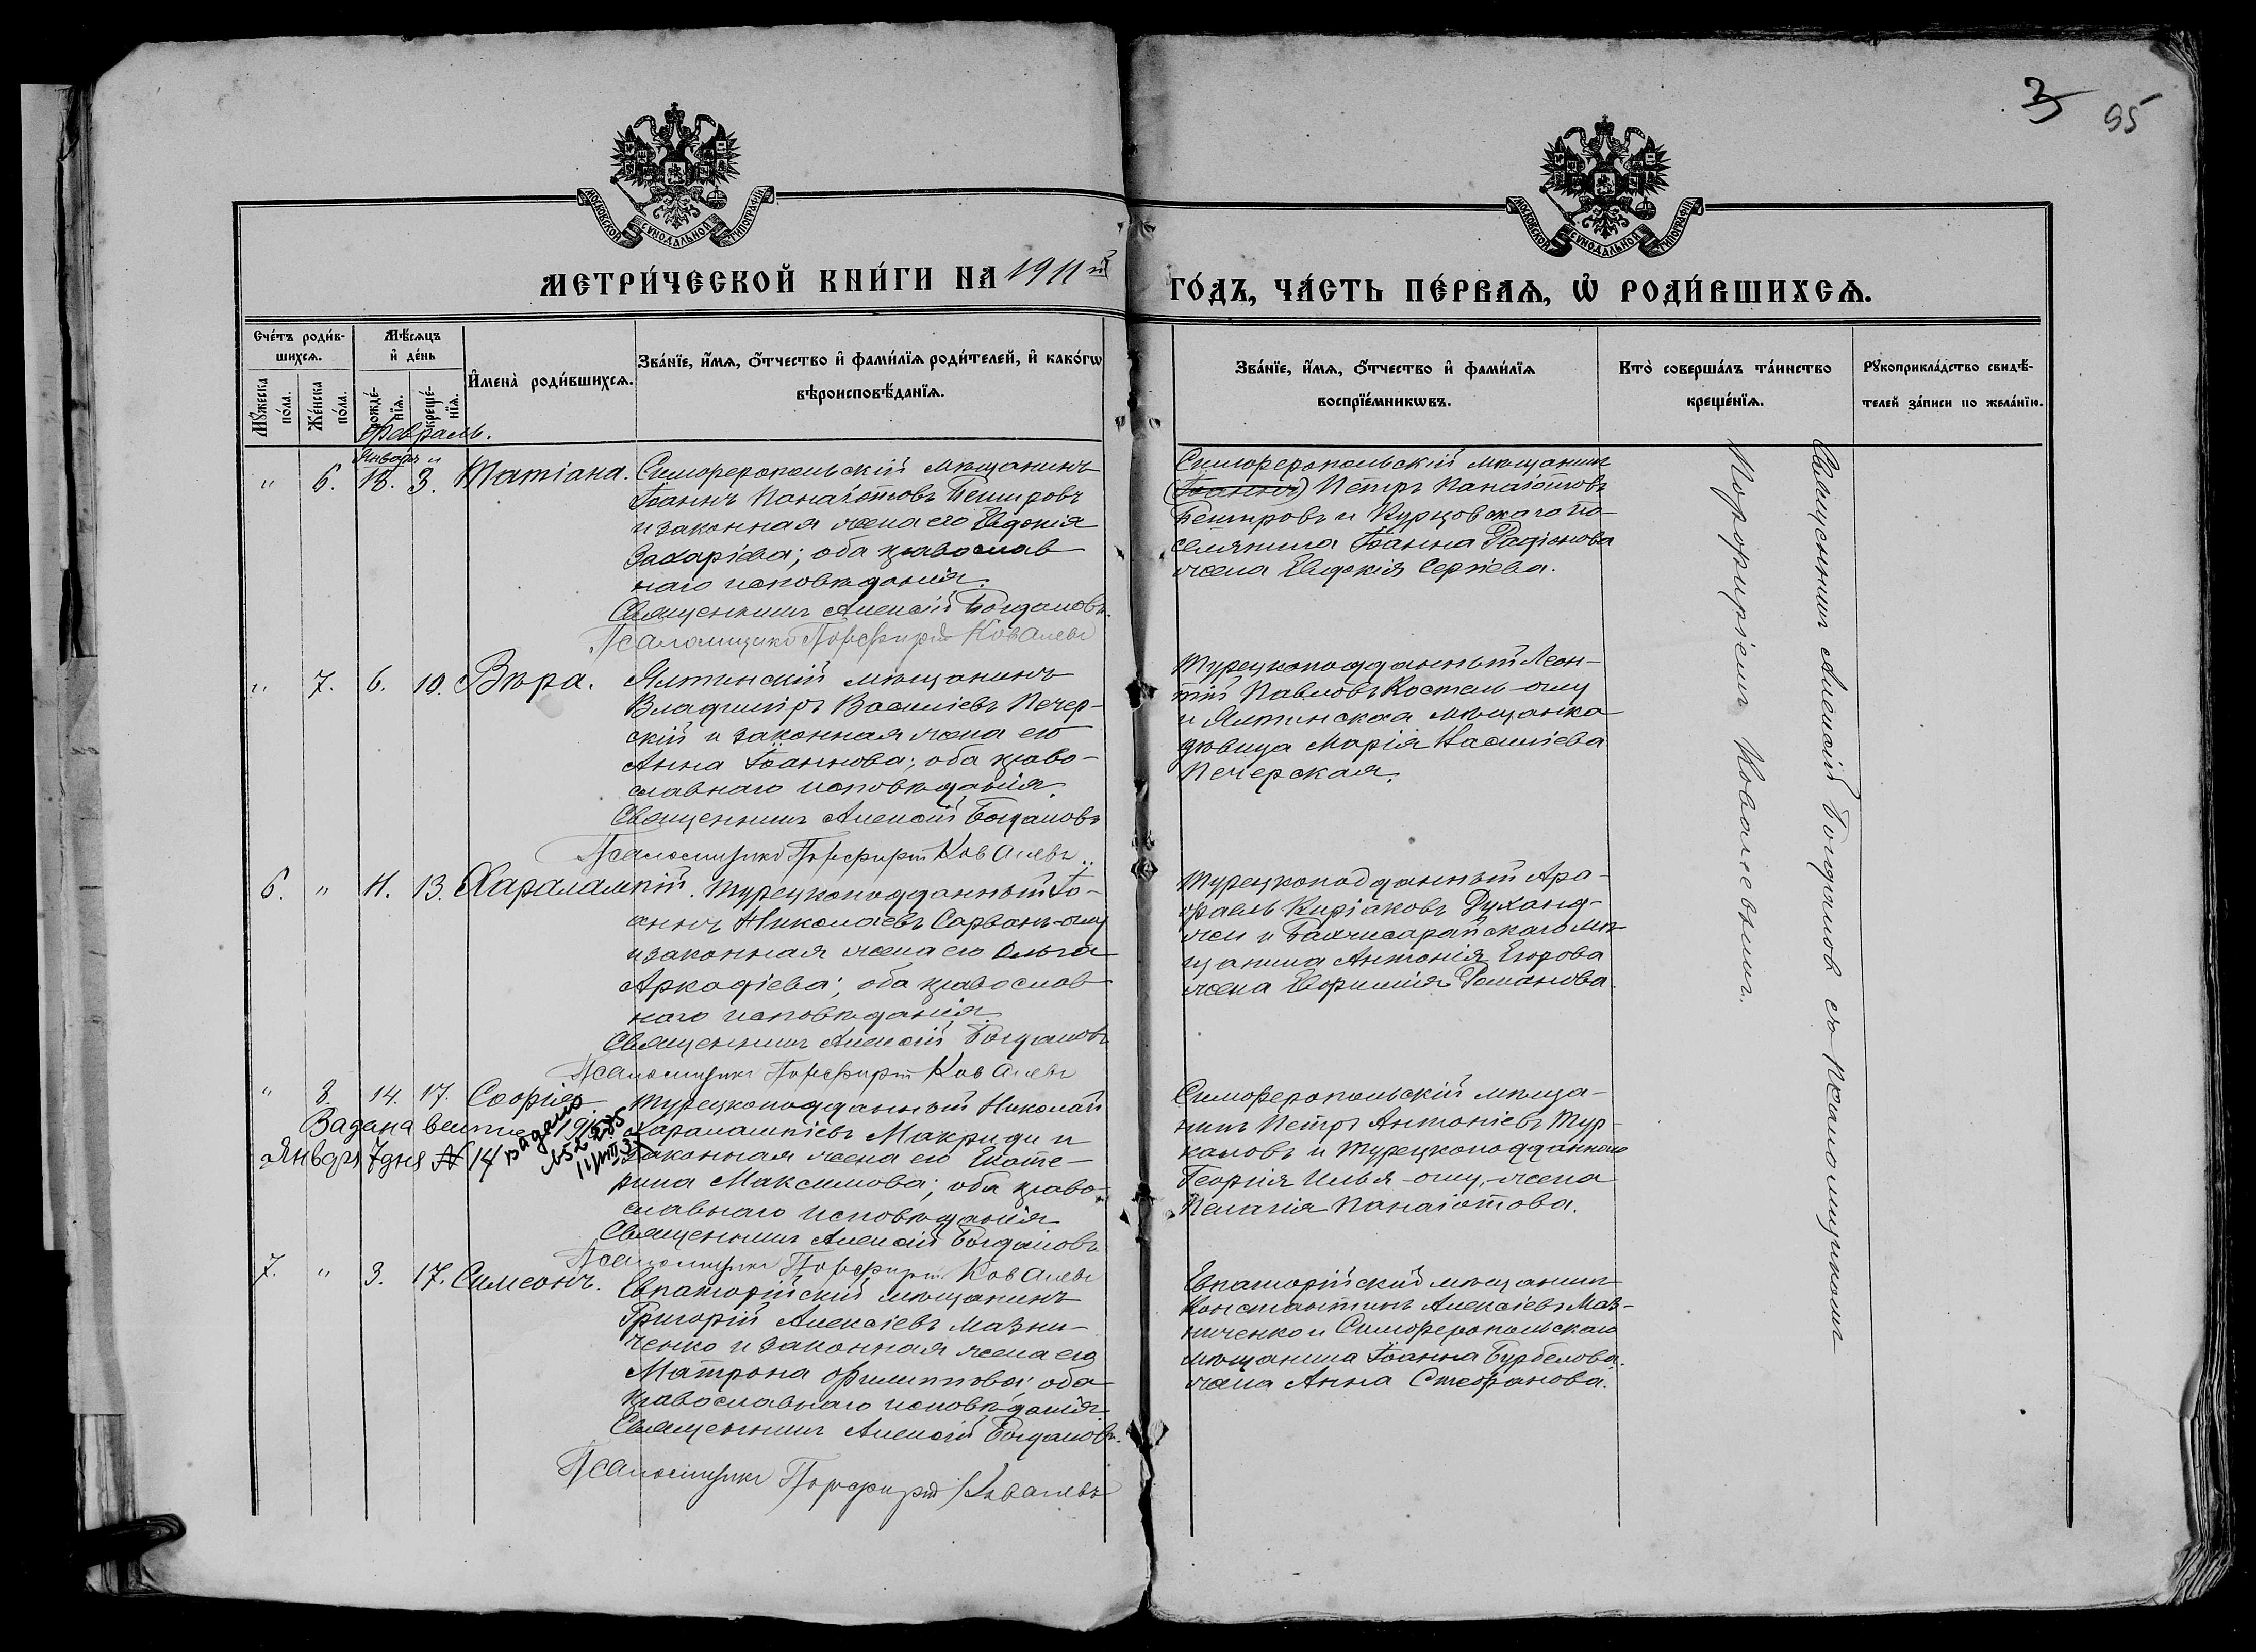 3 95
МОСКОВСКОЙ СѴНОДАЛЬНОЙ ТИПОГРАФІИ
МОСКОВСКОЙ СѴНОДАЛЬНОЙ ТИПОГРАФІИ
МЕТРИ́ЧЕСКОЙ КНИ́ГИ НА 1911й
ГО́ДЪ, ЧА́СТЬ ПЕ́РВАѦ, Ѡ҆ РОДИ́ВШИХСѦ.
Сче́тъ роди́в-
шихсѧ.
Мꙋ́жеска
по́ла.
Же́нска
по́ла.
Мѣ́сѧцъ
и҆ де́нь
рожде́-
нїѧ.
креще́-
нїѧ.
И҆мена̀ роди́вшихсѧ.
Зва́нїе, и҆́мѧ, ѻ҆́тчество и҆ фами́лїѧ роди́телей, и҆ како́гѡ
вѣроисповѣ́данїѧ.
Зва́нїе, и҆́мѧ, ѻ҆́тчество и҆ фами́лїѧ
воспрїе́мникѡвъ.
Кто̀ соверша́лъ та́инство
креще́нїѧ.
Рꙋкоприкла́дство свидѣ́-
телей за́писи по жела́нїю.
Февраль.
Январь и
" 6. 18. 3. Татіана. Симферопольскій мѣщанинъ
Іоаннъ Панаіотовъ Бемировъ
и законная жена его Евдокія
Захаріева; оба православ-
наго исповѣданія.
Священникъ Алексій Богдановъ.
Псаломщикъ Порфирій Ковалевъ
Симферопольскій мѣщанинъ
(Іоаннъ) Петръ Панаіотовъ
Бемировъ и Курцовскаго по-
селянина Іоанна Радіонова
жена Евдокія Сергіева.
" 7. 6. 10. Вѣра. Ялтинскій мѣщанинъ
Владиміръ Василіевъ Печер-
скій и законная жена его
Анна Іоаннова; оба право-
славнаго исповѣданія.
Священникъ Алексій Богдановъ
Псаломщикъ Порфирій Ковалевъ
Турецкоподданный Леон-
тій Павловъ Костель-оглу
и Ялтинская мѣщанка
дѣвица Марія Василіева
Печерская.
6. " 11. 13. Харалампій. Турецкоподданный Іо-
аннъ Николаевъ Сарванъ-оглу
и законная жена его Ольга
Аркадіева; оба православ-
наго исповѣданія.
Священникъ Алексій Богдановъ
Псаломщикъ Порфирій Ковалевъ
Турецкоподданный Ара-
фаелъ Киріаковъ Духанд-
жи и Бахчисарайскаго мѣ-
щанина Антонія Егорова
жена Евфимія Романова.
" 8. 14. 17. Софія. Турецкоподданный Николай
Харалампіевъ Макриди и
законная жена его Екате-
рина Максимова; оба право-
славнаго исповѣданія
Священникъ Алексій Богдановъ
Псаломщикъ Порфирій Ковалевъ
Января 7 дня № 14
Симферопольскій мѣща-
нинъ Петръ Антоніевъ Тур-
каловъ и Турецкоподданнаго
Георгія Илья-оглу, жена
Пелагія Панаіотова.
7. " 3. 17. Симеонъ. Евпаторійскій мѣщанинъ
Григорій Алексіевъ Мазни-
ченко и законная жена его
Матрона Филиппова; оба
православнаго исповѣданія
Священникъ Алексій Богдановъ.
Псаломщикъ Порфирій Ковалевъ
Евпаторійскій мѣщанинъ
Константинъ Алексіевъ Маз-
ниченко и Симферопольскаго
мѣщанина Іоанна Бурбелова
жена Анна Стефанова.
Священникъ Алексій Богдановъ съ псаломщикомъ
Порфиріемъ Ковалевымъ.